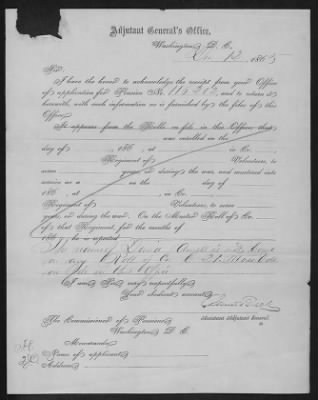 Adjutant General's Office,
Washington, D. C.
Dec 12, 1865
Sir:
I have the honor to acknowledge the receipt from your Office
of application for Pension No. 113,212, and to return it
herewith, with such information as is furnished by the files of this
Office.
It appears from the Rolls on file in this Office, that
was enrolled on the
day of , 186 , at , in Co.
Regiment of Volunteers, to
serve years, or during the war, and mustered into
service as a on the day of
186 , at , in Co.
Regiment of Volunteers, to serve
years, or during the war. On the Muster Roll of Co.
of that Regiment, for the months of
186 , he is reported
name David
on any Roll of Co. 21
on file in this Office
I am, Sir, very respectfully,
Your obedient servant,
Assistant Adjutant General.
The Commissioner of Pensions,
Washington, D. C.
Memoranda:
Name of applicant,
Address,